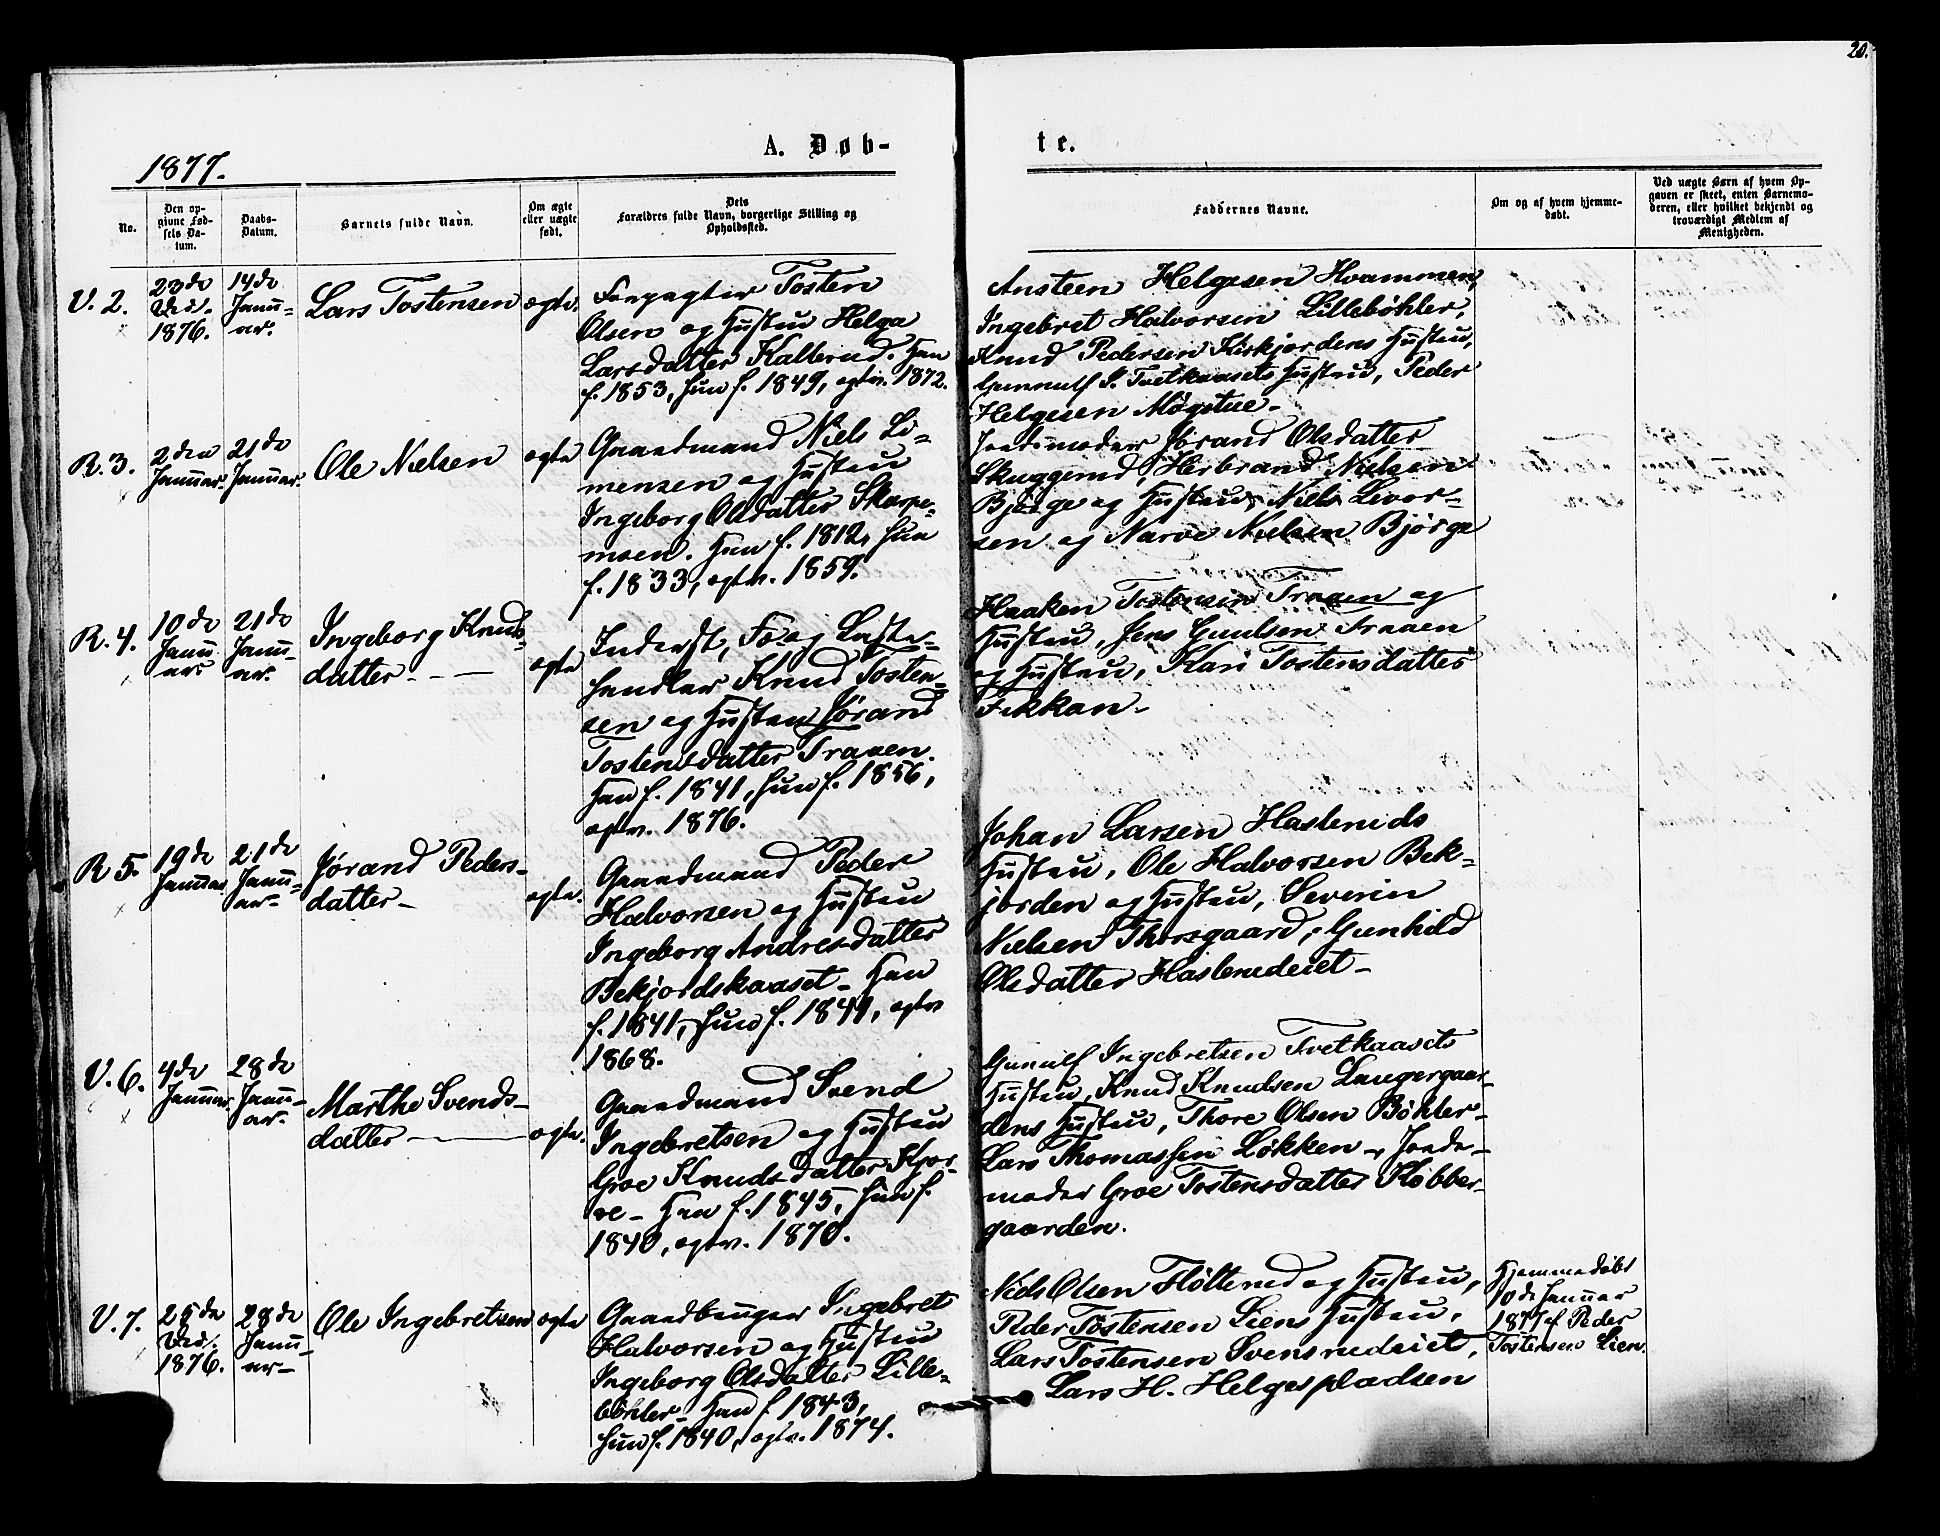 20.
A. Døb-
te.
1877.
No.
Den op-
givne Fød-
sels Da-
tum.
Daabs-
Datum.
Barnets fulde Navn.
Om ægte
eller uægte
født.
Dets
Forældres fulde Navn, borgerlige Stilling og
Opholdssted.
Faddernes Navne.
Om og af hvem hjemme-
døbt.
Ved uægte Børn af hvem Op-
gaven er skeet, enten Barnemo-
deren, eller hvilket bekjendt og
troværdigt Medlem af
Menigheden.
V. 2.
23de
Dec.
1876.
14de
Janu-
ar.
Lars Tostensen
ægte.
Forpagter Tosten
Olsen og Hustru Helga
Larsdatter Kallerud. Han
f. 1853, Hun f. 1849, egtv. 1872.
Ansteen Helgesen Hvammen,
Ingebret Halvorsen Lillebøhler,
Knud Pedersen Kirkjordens Hustru,
Gunnulf I. Tvetkaasets Hustru, Peder
Helgesen Møgstue.
R. 3.
2den
Januar.
21de
Januar.
Ole Nielsen
ægte
Gaardmand Niels Li-
mensen og Hustru
Ingeborg Olsdatter Skarpe-
moen. Han f. 1812, Hun
f. 1833, egtv. 1859.
Jordemoder Jørand Olsdatter
Skuggerud, Herbrand Nielsen
Bjørge og Hustru, Niels Levor-
sen og Narve Nielsen Bjørge
R. 4.
10de
Janu-
ar.
21de
Janu-
ar.
Ingeborg Knuds-
datter.
ægte
Inderst, Fæ og Laste-
handler Knud Tosten-
sen og Hustru Jørand
Tostensdatter Traaen.
Han f. 1841, Hun f. 1856,
egtv. 1876.
Haaken Tostensen Traaen og
Hustru, Jens Gulsen Traaen
og Hustru, Kari Tostensdatter
Fikkan.
R 5.
19de
Januar
21de
Janu-
ar.
Jørand Peders-
datter
ægte.
Gaardmand Peder
Halvorsen og Hustru
Ingeborg Andresdatter
Bekjordskaaset. Han
f. 1841, Hun f. 1841, egtv
1868.
Johan Larsen Hasleruds
Hustru, Ole Halvorsen Bek-
jorden og Hustru, Severin
Nielsen Thorsgaard, Gunhild
Olsdatter Haslerudeiet
V. 6.
4de
Januar
28de
Janu-
ar.
Marthe Svends-
datter
ægte.
Gaardmand Svend
Ingebretsen og Hustru
Groe Knudsdatter Kjør-
ve. Han f. 1845, Hun f.
1840, egtv. 1870.
Gunulf Ingebretsen Tvetkaasets
Hustru, Knud Knudsen Langergaar-
dens Hustru, Thore Olsen Bøhler,
Lars Thomassen Løkken, Jorde-
moder Groe Tostensdatter Klobber-
gaarden.
V. 7.
25de
Dec.
1876.
28de
Janu-
ar
Ole Ingebretsen
ægte
Gaardbruger Ingebret
Halvorsen og Hustru
Ingeborg Olsdatter Lille-
bøhler. Han f. 1843,
Hun f. 1840, egtv. 1874.
Niels Olsen Holterud og Hustru,
Peder Tostensen Liens Hustru,
Lars Tostensen Svensrudeiet,
Lars H. Helgespladsen
Hjemmedøbt
10de Januar
1877 af Peder
Tostensen Lien.